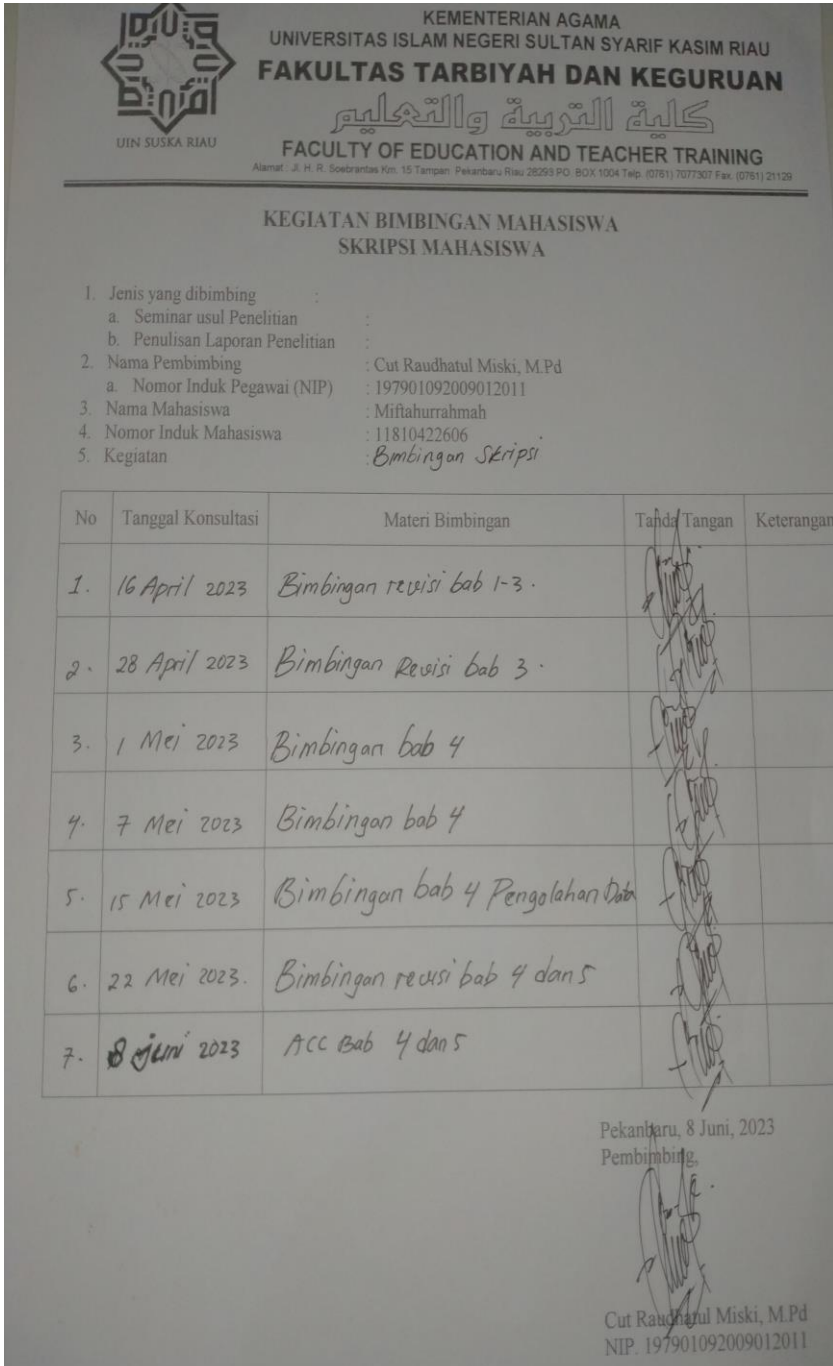 UIN SUSKA RIAU
KEMENTERIAN AGAMA
UNIVERSITAS ISLAM NEGERI SULTAN SYARIF KASIM RIAU
FAKULTAS TARBIYAH DAN KEGURUAN
كلية التربية والتعليم
FACULTY OF EDUCATION AND TEACHER TRAINING
Alamat : Jl. H. R. Soebrantas Km. 15 Tampan Pekanbaru Riau 28293 PO. BOX 1004 Telp. (0761) 7077307 Fax. (0761) 21129
KEGIATAN BIMBINGAN MAHASISWA
SKRIPSI MAHASISWA
1. Jenis yang dibimbing :
a. Seminar usul Penelitian :
b. Penulisan Laporan Penelitian :
2. Nama Pembimbing : Cut Raudhatul Miski, M.Pd
a. Nomor Induk Pegawai (NIP) : 197901092009012011
3. Nama Mahasiswa : Miftahurrahmah
4. Nomor Induk Mahasiswa : 11810422606
5. Kegiatan : Bimbingan Skripsi
No Tanggal Konsultasi Materi Bimbingan Tanda Tangan Keterangan
1. 16 April 2023 Bimbingan revisi bab 1-3.
2. 28 April 2023 Bimbingan Revisi bab 3.
3. 1 Mei 2023 Bimbingan bab 4
4. 7 Mei 2023 Bimbingan bab 4
5. 15 Mei 2023 Bimbingan bab 4 Pengolahan Data
6. 22 Mei 2023. Bimbingan revisi bab 4 dan 5
7. 8 juni 2023 ACC Bab 4 dan 5
Pekanbaru, 8 Juni, 2023
Pembimbing,
Cut Raudhatul Miski, M.Pd
NIP. 197901092009012011